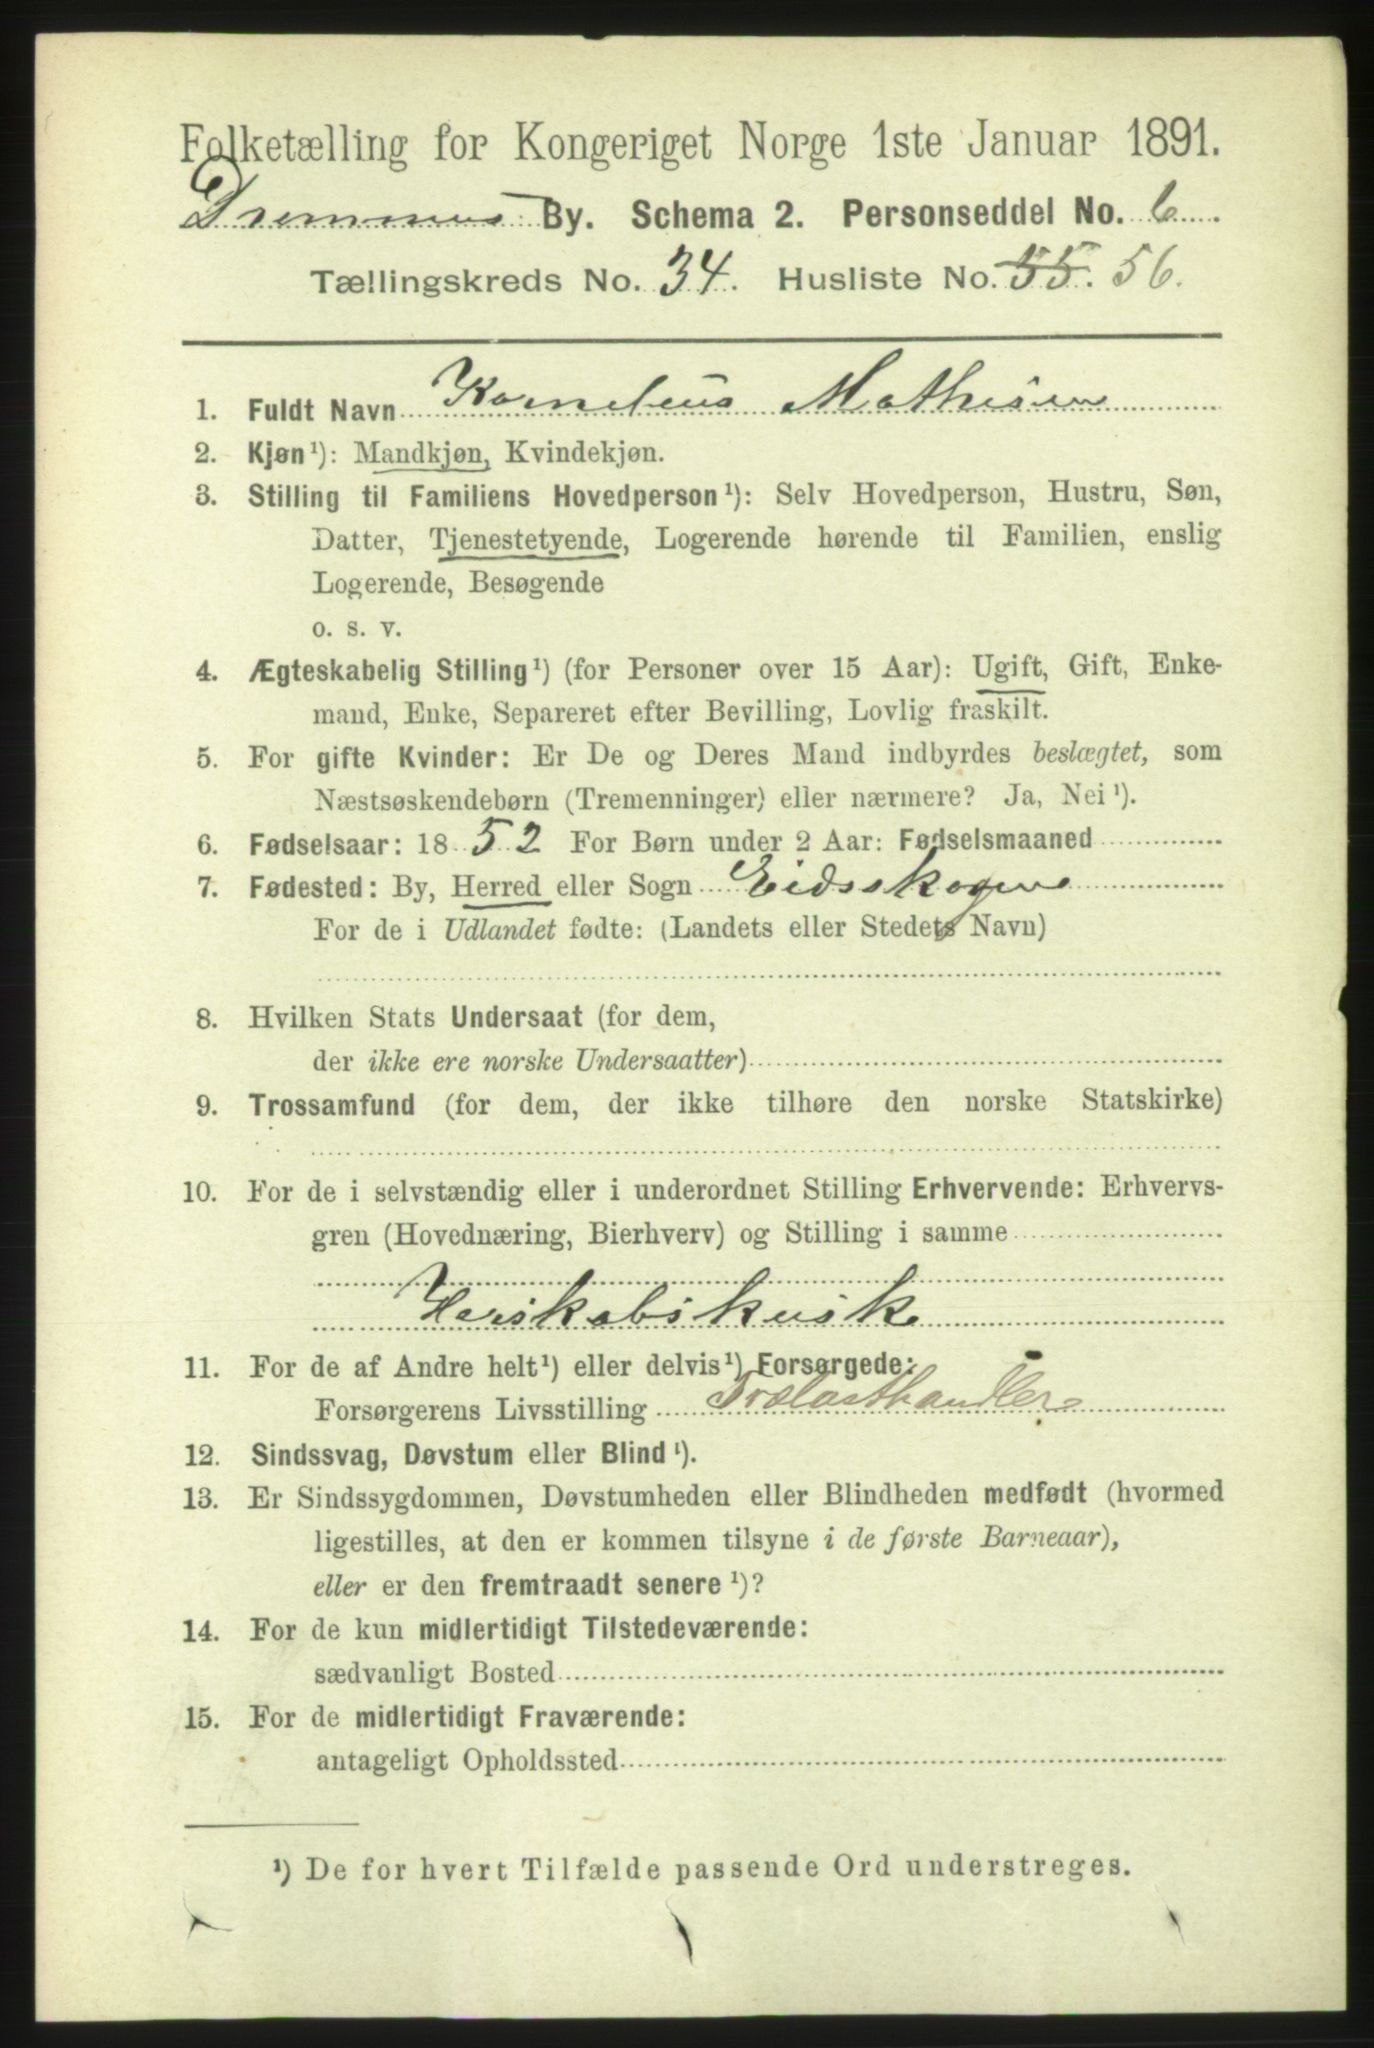 Folketælling for Kongeriget Norge 1ste Januar 1891.
Drammens By. Schema 2. Personseddel No. 6.
Tællingskreds No. 34. Husliste No. 55. 56.
1. Fuldt Navn Kornelius Mathisen
2. Kjøn¹): Mandkjøn, Kvindekjøn.
3. Stilling til Familiens Hovedperson¹): Selv Hovedperson, Hustru, Søn,
Datter, Tjenestetyende, Logerende hørende til Familien, enslig
Logerende, Besøgende
o. s. v.
4. Ægteskabelig Stilling¹) (for Personer over 15 Aar): Ugift, Gift, Enke-
mand, Enke, Separeret efter Bevilling, Lovlig fraskilt.
5. For gifte Kvinder: Er De og Deres Mand indbyrdes beslægtet, som
Næstsøskendebørn (Tremenninger) eller nærmere? Ja, Nei¹).
6. Fødselsaar: 1852 For Børn under 2 Aar: Fødselsmaaned
7. Fødested: By, Herred eller Sogn Eidsskogen
For de i Udlandet fødte: (Landets eller Stedets Navn)
8. Hvilken Stats Undersaat (for dem,
der ikke ere norske Undersaatter)
9. Trossamfund (for dem, der ikke tilhøre den norske Statskirke)
10. For de i selvstændig eller i underordnet Stilling Erhvervende: Erhvervs-
gren (Hovednæring, Bierhverv) og Stilling i samme
Herskabskusk
11. For de af Andre helt¹) eller delvis¹) Forsørgede:
Forsørgerens Livsstilling Trælasthandler
12. Sindssvag, Døvstum eller Blind¹).
13. Er Sindssygdommen, Døvstumheden eller Blindheden medfødt (hvormed
ligestilles, at den er kommen tilsyne i de første Barneaar),
eller er den fremtraadt senere¹)?
14. For de kun midlertidigt Tilstedeværende:
sædvanligt Bosted
15. For de midlertidigt Fraværende:
antageligt Opholdssted
¹) De for hvert Tilfælde passende Ord understreges.